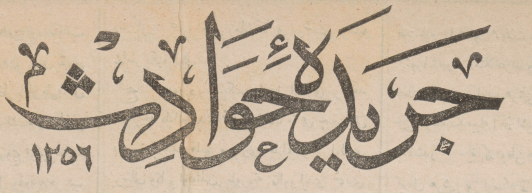 جريدهٔ حوادث
١٢٥٦